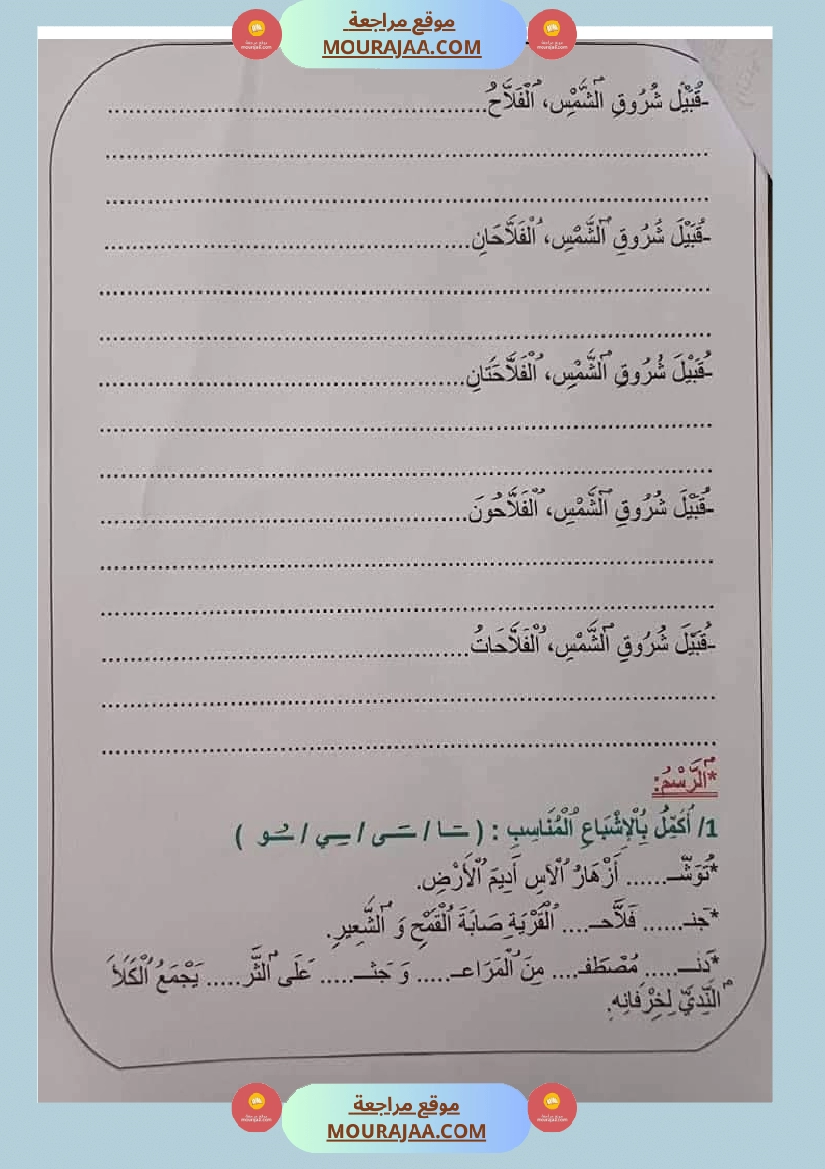 موقع مراجعة
MOURAJAA.COM
-قُبَيْلَ شُرُوقِ ٱلشَّمْسِ، ٱلْفَلَّاحُ..........................................
..........................................................................
..........................................................................
-قُبَيْلَ شُرُوقِ ٱلشَّمْسِ، ٱلْفَلَّاحَانِ..........................................
..........................................................................
..........................................................................
-قُبَيْلَ شُرُوقِ ٱلشَّمْسِ، ٱلْفَلَّاحَتَانِ..........................................
..........................................................................
..........................................................................
-قُبَيْلَ شُرُوقِ ٱلشَّمْسِ، ٱلْفَلَّاحُونَ..........................................
..........................................................................
..........................................................................
-قُبَيْلَ شُرُوقِ ٱلشَّمْسِ، ٱلْفَلَّاحَاتُ..........................................
..........................................................................
..........................................................................
*ٱلرَّسْمُ:
1/ أُكَمِّلُ بِٱلْإِشْبَاعِ ٱلْمُنَاسِبِ : ( ـَـا / ـَـى / ـِـي / ـُـو )
*تُوَشّـ...... أَزْهَارُ ٱلْآسِ أَدِيمَ ٱلْأَرْضِ.
*جَنـ...... فَلَّاحـ.... ٱلْقَرْيَةِ صَابَةَ ٱلْقَمْحِ وَ ٱلشَّعِيرِ.
*دَنـ..... مُصْطَفـ.... مِنَ ٱلْمَرَاعـ..... وَ جَثـ..... عَلَى ٱلثَّر..... يَجْمَعُ ٱلْكَلَأَ
ٱلنَّدِيَّ لِخِرْفَانِهِ.
موقع مراجعة
MOURAJAA.COM